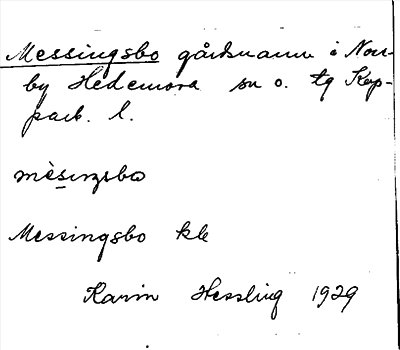 Messingsbo gårdsnamn i Norr-
by Hedemora sn o. tg Kop-
parb. l.
mèsiŋsbω
Messingsbo kle
Karin Hessling 1929